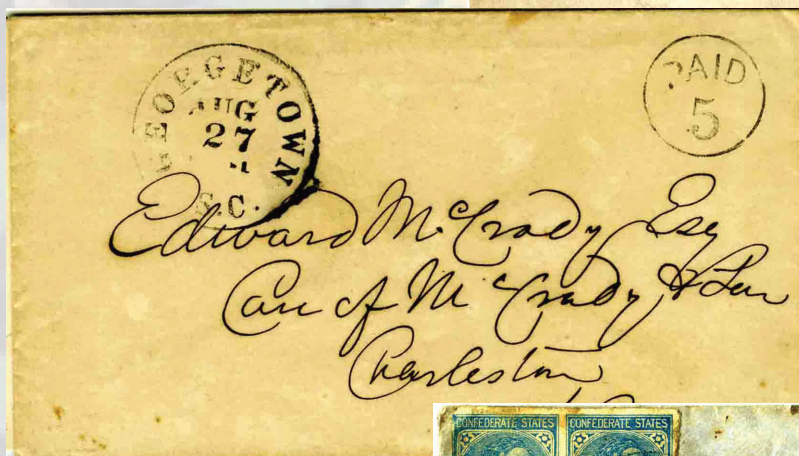 GEORGETOWN
AUG
27
S.C.
PAID
5
Edward McCrady Esq
Care of McCrady & Son
Charleston
CONFEDERATE STATES CONFEDERATE STATES